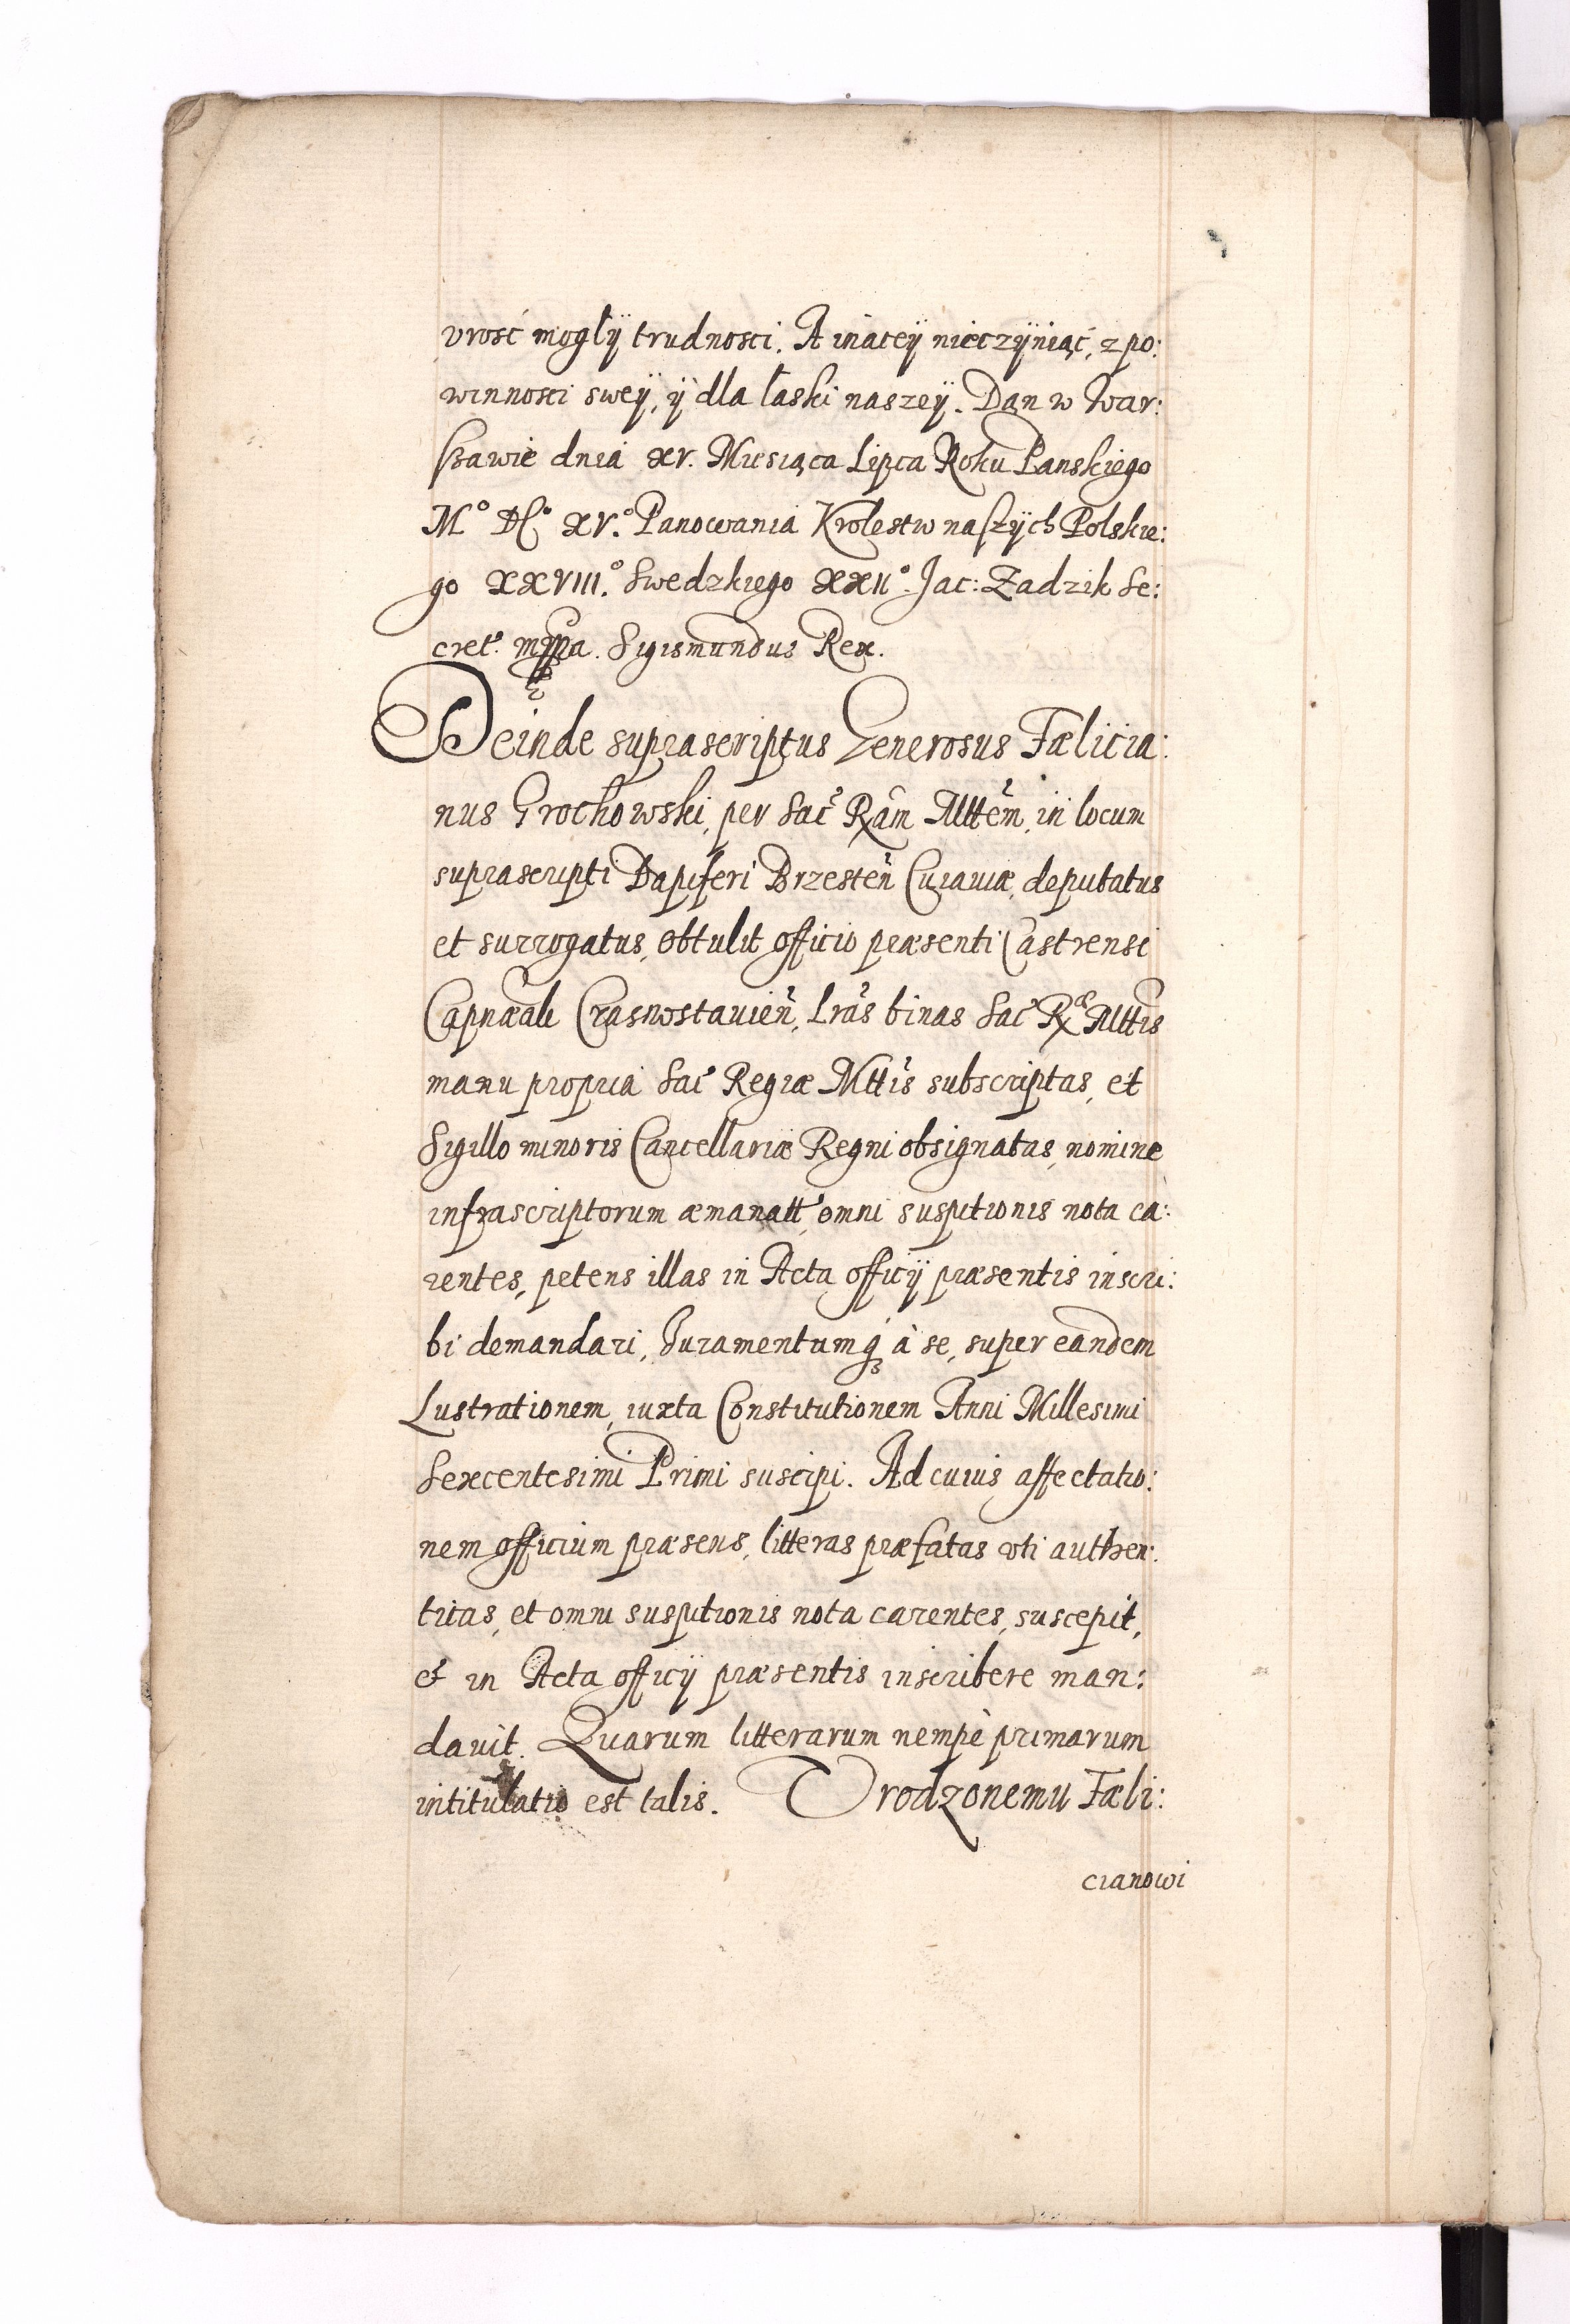 vrość mogły trudnosci. A inaceÿ nieczÿniąć, z po:
winnosci sweÿ, ÿ dla łaski naszeÿ. Dan w War:
szawie dnia xv. Miesiąca Lipca Roku Panskiego
M.° DC.° XV.° Panowania Krolestw naszÿch Polskie:
go XXVIII.° Swedzkiego XXII.° Jac: Zadzik Se:
cret. mppa. Sigismundus Rex.
Deinde suprascriptus Generosus Fælicia:
nus Grochowski, per Sac Ram Mttem, in locum
suprascripti Dapiferi Brzesten Cuiauiæ, deputatus
et surrogatus, obtulit officio præsenti Castrensi
Capnæali Crasnostauien, Lras binas Sac Ræ Mttis
manu propria Sac Regiæ Mttis subscriptas, et
Sigillo minoris Cancellariæ Regni obsignatas, nomine
infrascriptorum æmanatt, omni suspitionis nota ca:
rentes, petens illas in Acta officÿ præsentis inscri:
bi demandari, Iuramentumq à se, super eandem
Lustrationem, iuxta Constitutionem Anni Millesimi
Sexcentesimi Primi suscipi. Ad cuius affectatio:
nem officium præsens, litteras præfatas vti authen:
ticas, et omni suspitionis nota carentes, suscepit,
& in Acta officÿ præsentis inscribere man:
dauit. Quarum litterarum nempè primarum
intitulatio est talis. Vrodzonemu Fæli:
cianowi